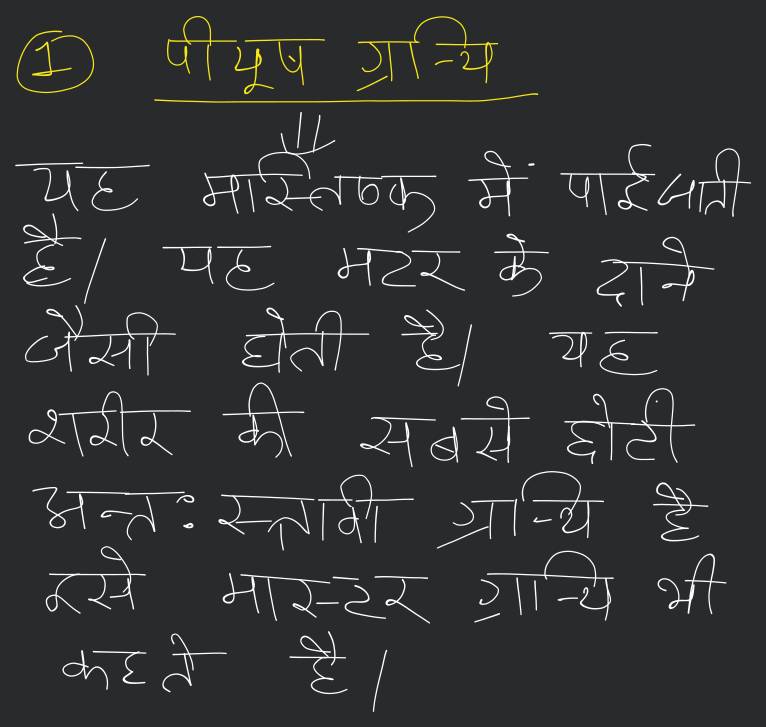 ① पीयूष ग्रन्थि
यह मस्तिष्क में पाई जाती
है। यह मटर के दाने
जैसी होती है। यह
शरीर की सबसे छोटी
अन्तः स्त्रावी ग्रन्थि है
इसे मास्टर ग्रन्थि भी
कहते है।